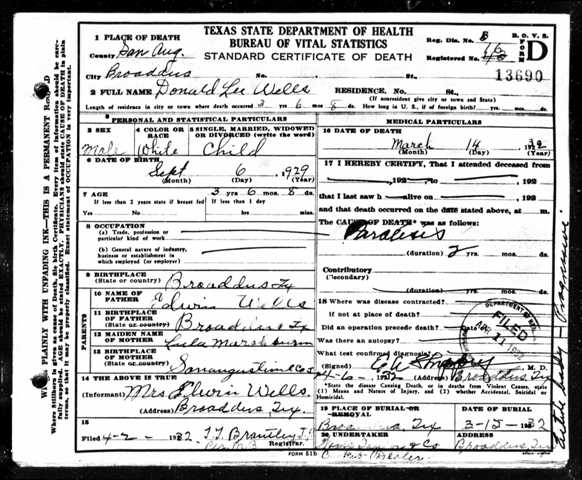 TEXAS STATE DEPARTMENT OF HEALTH
BUREAU OF VITAL STATISTICS
STANDARD CERTIFICATE OF DEATH
Reg. Dis. No. B
B. O. V. S.
Registered No. 16
FORM D
13690
1 PLACE OF DEATH
County San Aug.
City Broaddus No. St.,
2 FULL NAME Donald Lee Wells RESIDENCE, No. St.,
(If nonresident give city or town and State)
Length of residence in city or town where death occurred 3 yrs. 6 mos. 8 ds. How long in U. S., if of foreign birth? yrs. mos. ds.
PERSONAL AND STATISTICAL PARTICULARS
3 SEX
Male
4 COLOR OR RACE
White
5 SINGLE, MARRIED, WIDOWED OR DIVORCED (write the word)
Child
6 DATE OF BIRTH
Sept 6 1929
(Month) (Day) (Year)
7 AGE 3 yrs 6 mos. 8 ds.
If less than 2 years state if breast fed
Yes No
If less than 1 day
hrs. min.
8 OCCUPATION
(a) Trade, profession or particular kind of work
(b) General nature of industry, business or establishment in which employed or (employer)
9 BIRTHPLACE
(State or country) Broaddus Tx
PARENTS
10 NAME OF FATHER Edwin Wells
11 BIRTHPLACE OF FATHER
(State or country) Broaddus Tx
12 MAIDEN NAME OF MOTHER Lula
13 BIRTHPLACE OF MOTHER
(State or country) Sanaugustine Co
14 THE ABOVE IS TRUE
(Informant) Mrs Edwin Wells
(Address) Broaddus Tex.
15
Filed 4-2- 1932 T. J. Brantley
Registrar
MEDICAL PARTICULARS
16 DATE OF DEATH
March 14 1932
(Month) (Day) (Year)
17 I HEREBY CERTIFY, That I attended deceased
from , 192 , to , 192
that I last saw h alive on , 192
and that death occurred on the date stated above, at m.
The CAUSE OF DEATH* was as follows:
Paralisis
(duration) 2 yrs. mos. ds.
Contributory
(Secondary)
(duration) yrs. mos. ds.
18 Where was disease contracted?
If not at place of death?
Did an operation precede death? Date
Was there an autopsy?
What test confirmed diagnosis?
(Signed) M. D.
4-6- 1932 (Address) Broaddus Tex
*State the disease Causing Death, or in deaths from Violent Causes, state (1) Means and Nature of Injury, and (2) whether Accidental, Suicidal or Homicidal.
19 PLACE OF BURIAL OR REMOVAL
Broaddus, Tex
DATE OF BURIAL
3-15-1932
20 UNDERTAKER
ADDRESS
Broaddus Tex
DEPARTMENT OF HEALTH
FILED
APR 21 1932
FORM 51b